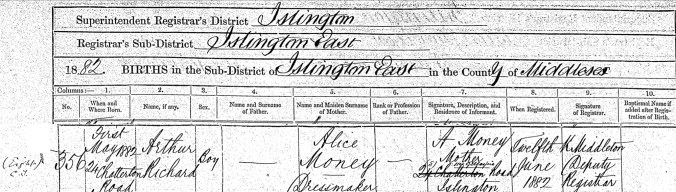 Superintendent Registrar's District Islington
Registrar's Sub-District Islington East
1882. BIRTHS in the Sub-District of Islington East in the County of Middlesex
Columns:— 1. 2. 3. 4. 5. 6. 7. 8. 9. 10.
No. When and Where Born. Name, if any. Sex. Name and Surname of Father. Name and Maiden Surname of Mother. Rank or Profession of Father. Signature, Description, and Residence of Informant. When Registered. Signature of Registrar. Baptismal Name if added after Registration of Birth.
356 First May 1882 24 Chatterton Road
Arthur Richard
Boy
—
Alice Money Dressmaker
—
A. Money Mother Chatterton Road Islington
Twelfth June 1882
K. Middleton Deputy Registrar